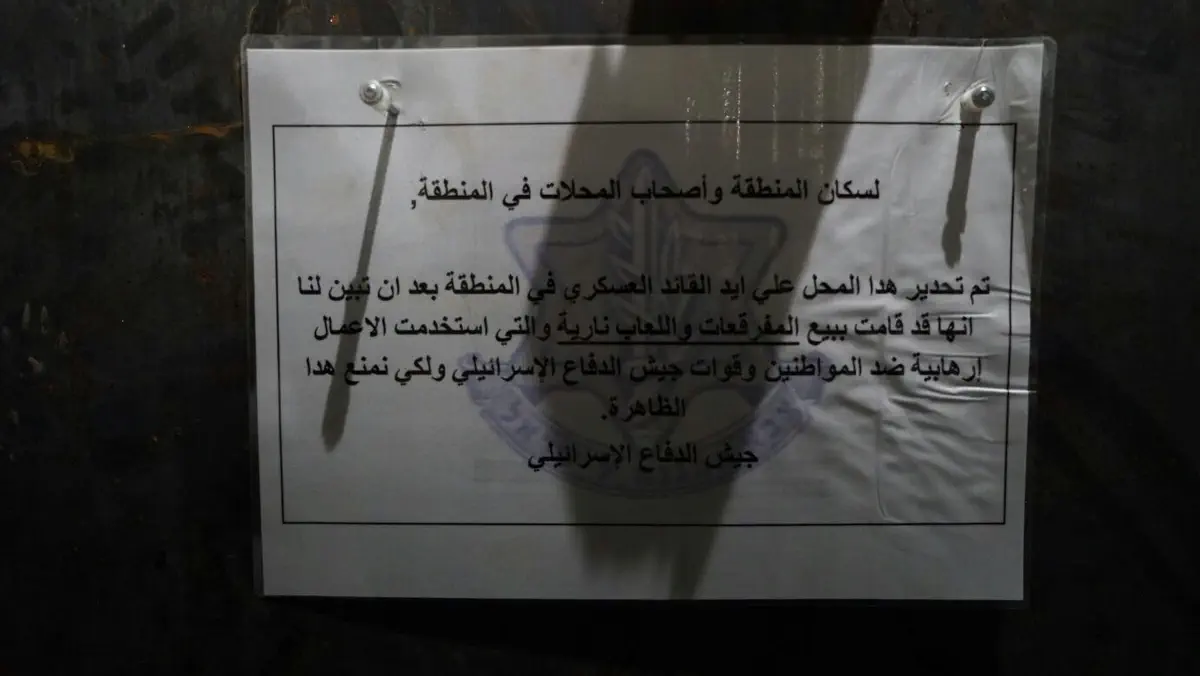 لسكان المنطقة وأصحاب المحلات في المنطقة,
تم تحدير هدا المحل علي ايد القائد العسكري في المنطقة بعد ان تبين لنا
انها قد قامت ببيع المفرقعات واللعاب نارية والتي استخدمت الاعمال
إرهابية ضد المواطنين وقوات جيش الدفاع الإسرائيلي ولكي نمنع هدا
الظاهرة.
جيش الدفاع الإسرائيلي